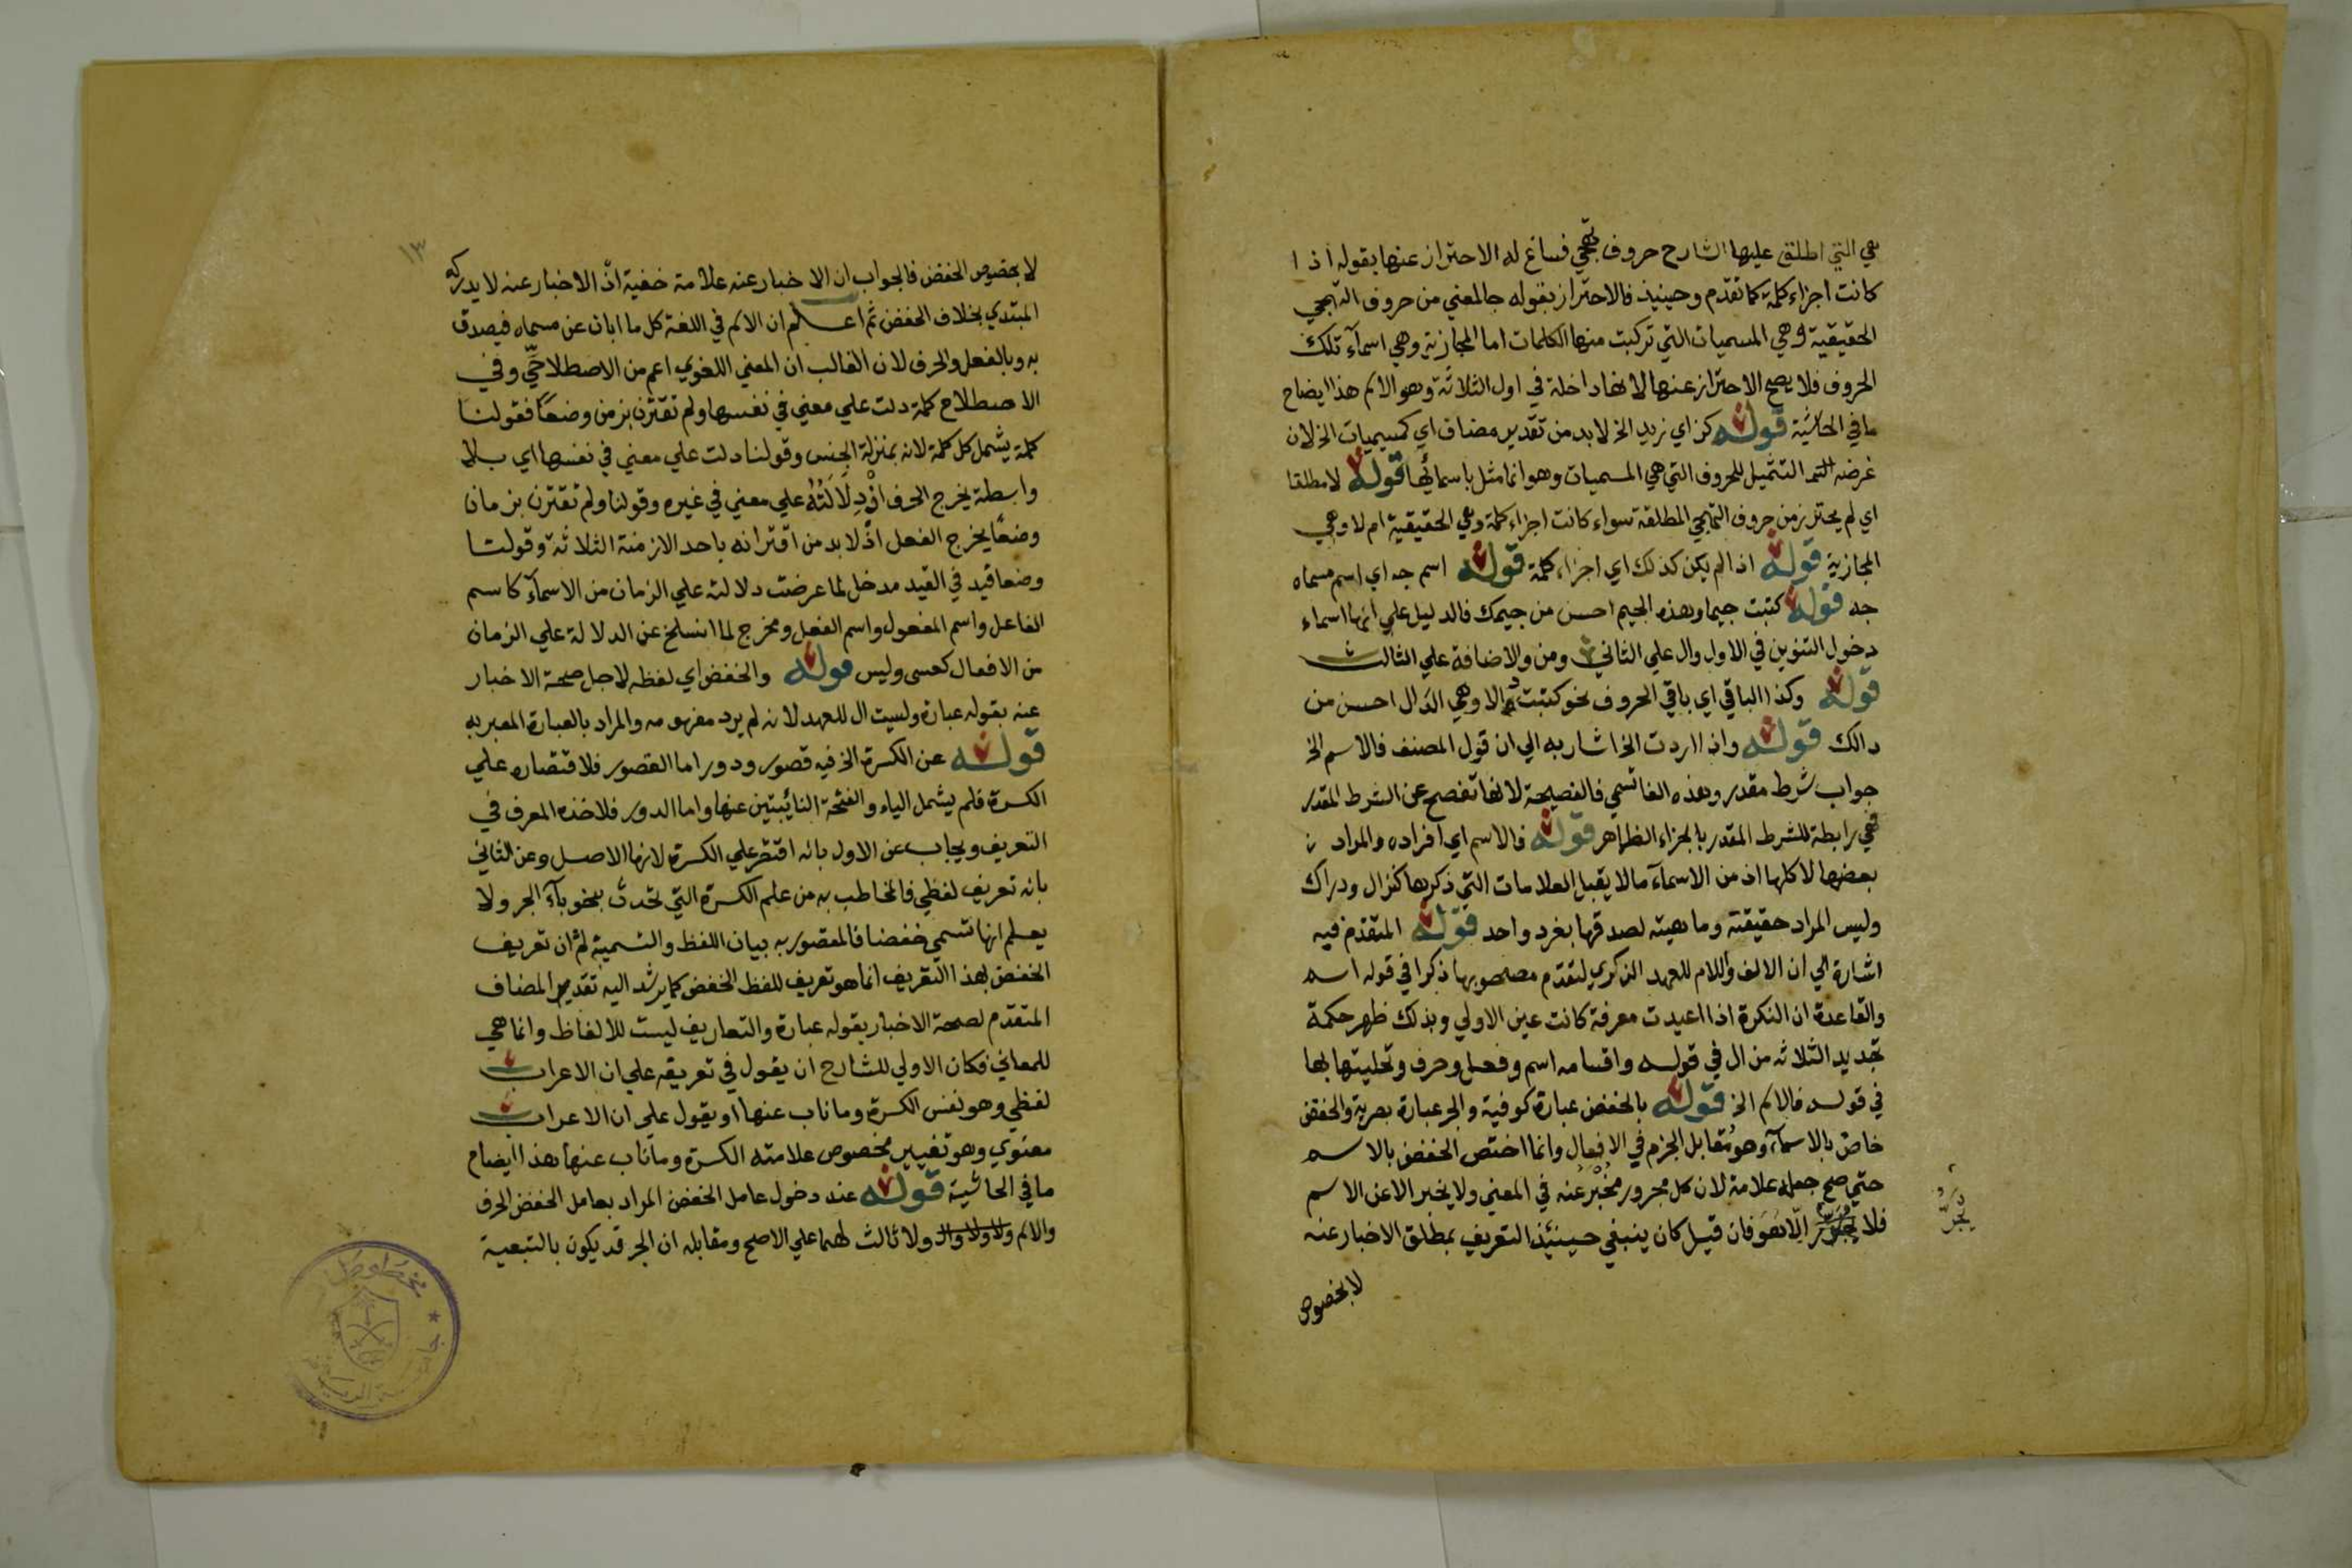 هي التي اطلق عليها الشارح حروف تهجي فساغ له الاحتراز عنها بقوله اذا
كانت اجزاء كلمة كما تقدم وحينيذ فالاحتراز بقوله جا لمعني من حروف التهجي
الحقيقية وهي المسميات التي تركبت منها الكلمات اما المجازية وهي اسمآء تلك
الحروف فلا يصح الاحتراز عنها لانها داخلة في اول الثلاثة وهو الاسم هذا ايضاح
ما في الحاشية قوله كزاي زيد الخ لابد من تقدير مضاف اي كمسميات الخ لان
غرضه التمثيل للحروف التي هي المسميات وهو انما مثل باسمائها قوله لا مطلقا
اي لم يحترز من حروف التهجي المطلقة سواء كانت اجزاء كلمة وهي الحقيقية ام لا وهي
المجازية قوله اذا لم يكن كذلك اي اجزاء كلمة قوله اسم جه اي اسم مسماه
جه قوله كتبت جيما وهذه الجيم احسن من جيمك فالدليل علي انها اسماء
دخول التنوين في الاول وال علي الثاني ومن والاضافة علي الثالث
قوله وكذا الباقي اي باقي الحروف نحو كتبت دالا وهي الدال احسن من
دالك قوله واذا اردت الخ اشار به الي ان قول المصنف فالاسم الخ
جواب شرط مقدر وهذه الفا تسمي فا الفصيحة لانها تفصح عن الشرط المقدر
فهي رابطة للشرط المقدر بالجزاء الظاهر قوله فالاسم اي افراده والمراد
بعضها لا كلها اذ من الاسمآء ما لا يقبل العلامات التي ذكرها كنزال ودراك
وليس المراد حقيقته وماهيته لصدقها بفرد واحد قوله المتقدم فيه
اشارة الي ان الالف واللام للعهد الذكري لتقدم مصحوبها ذكرا في قوله اسم
والقاعدة ان النكرة اذا اعيدت معرفة كانت عين الاولي وبذلك ظهر حكمة
تجديد الثلاثه من ال في قوله واقسامه اسم وفعل وحرف وتحليتها بها
في قوله فالاسم الخ قوله بالخفض عبارة كوفية والجر عبارة بصرية والخفض
خاص بالاسمآء وهو مقابل الجزم في الافعال وانما اختص الخفض بالاسم
حتي صح جعله علامة لان كل مجرور مخبر عنه في المعني ولا يخبر الا عن الاسم
فلا يجر الا هو فان قيل كان ينبغي حينئذ التعريف بمطلق الاخبار عنه
يجر
لا بخصوص
١٣
لا بخصوص الخفض فالجواب ان الاخبار عنه علامة خفية اذ الاخبار عنه لا يدركه
المبتدي بخلاف الخفض ثم اعلم ان الاسم في اللغة كل ما ابان عن مسماه فيصدق
به وبالفعل والحرف لان الغالب ان المعني اللغوي اعم من الاصطلاحي وفي
الاصطلاح كلمة دلت علي معني في نفسها ولم تقترن بزمن وضعا فقولنا
كلمة يشمل كل كلمة لانه بمنزلة الجنس وقولنا دلت علي معني في نفسها اي بلا
واسطة يخرج الحرف اذ دلالته علي معني في غيره وقولنا ولم تقترن بزمان
وضعا يخرج الفعل اذ لا بد من اقترانه باحد الازمنة الثلاثة وقولنا
وضعا قيد في القيد مدخل لما عرضت دلالته علي الزمان من الاسمآء كاسم
الفاعل واسم المفعول واسم الفعل ومخرج لما انسلخ عن الدلالة علي الزمان
من الافعال كعسى وليس قوله والخفض اي لفظه لاجل صحة الاخبار
عنه بقوله عبارة وليست ال للعهد لانه لم يرد مفهومه والمراد بالعبارة المعبر به
قوله عن الكسرة الخ فيه قصور ودور اما القصور فلاقتصاره علي
الكسرة فلم يشمل الياء والفتحة النائبتين عنها واما الدور فلاخذه المعرف في
التعريف ويجاب عن الاول بانه اقتصر علي الكسرة لانها الاصل وعن الثاني
بانه تعريف لفظي فالمخاطب به من علم الكسرة التي تحدث بنحو بآء الجر ولا
يعلم انها تسمي خفضا فالمقصود به بيان اللفظ والتسمية ثم ان تعريف
الخفض بهذا التعريف انما هو تعريف للفظ الخفض كما يرشد اليه تقدير المضاف
المتقدم لصحة الاخبار بقوله عبارة والتعاريف ليست للالفاظ وانما هي
للمعاني فكان الاولي للشارح ان يقول في تعريفه علي ان الاعراب
لفظي وهو نفس الكسرة وما ناب عنها او يقول علي ان الاعراب
معنوي وهو تغيير مخصوص علامته الكسرة وما ناب عنها هذا ايضاح
ما في الحاشية قوله عند دخول عامل الخفض المراد بعامل الخفض الحرف
والاسم ولا ثالث لهما علي الاصح ومقابله ان الجر قد يكون بالتبعية